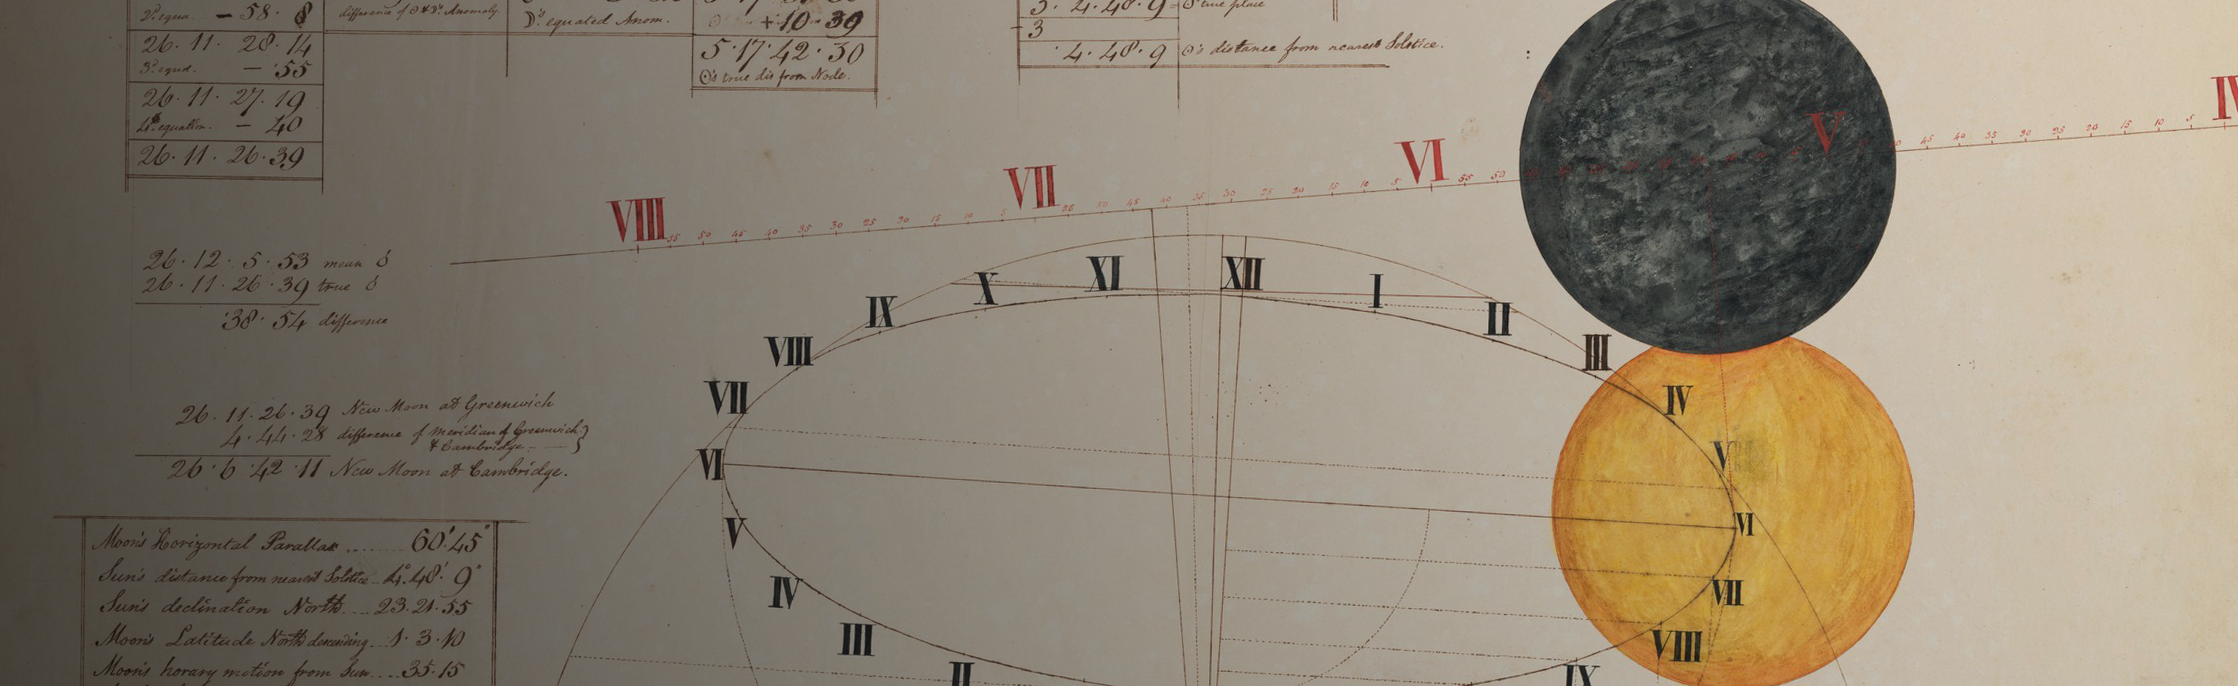 2d. equa. — 58. 8
26. 11. 28. 14
3d. equa. — 55
26. 11. 27. 19
4th equation. — 40
26. 11. 26. 39
difference of ☉ & ☽'s Anomaly.
☽'s equated Anom.
+ 10 39
5. 17. 42. 30
☉'s true dis from Node.
3. 4. 48. 9 = ☉'s true place
- 3
4. 48. 9 ☉'s distance from nearest Solstice.
26. 12. 5. 53 mean ☌
26. 11. 26. 39 true ☌
38. 54 difference
26. 11. 26. 39 New Moon at Greenwich
4. 44. 28 difference of Meridian of Greenwich & Cambridge
26. 6. 42. 11 New Moon at Cambridge.
Moon's Horizontal Parallax ....... 60' 45"
Sun's distance from nearest Solstice .. 4°. 48' 9"
Sun's declination North .... 23. 21. 55
Moon's Latitude North descending .. 1. 3. 10
Moon's horary motion from Sun .... 35. 15
VIII 55 50 45 40 35 30 25 20 15 10 5 VII 55 50 45 40 35 30 25 20 15 10 5 VI 55 50 V 45 40 35 30 25 20 15 10 5 IV
VI VII VIII IX X XI XII I II III IV V VI VII VIII IX
V IV III II